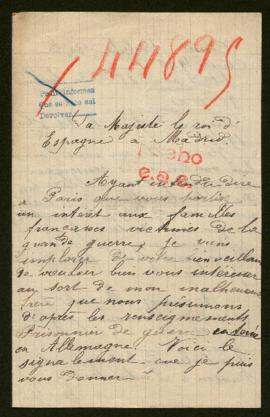 44895
Pedir informes
Devolver
Sa Majesté le roi d'
Espagne à Madrid.
Hecho
Ayant entendu dire
à Paris que vous portiez
un intérêt aux familles
françaises victimes de la
grande guerre, je viens
implorer de votre bienveillance
de vouloir bien vous intéresser
au sort de mon malheureux
frère que nous présumons
d'après les renseignements
Prisonnier de guerre
en Allemagne. Voici le
signalement que je puis
vous donner